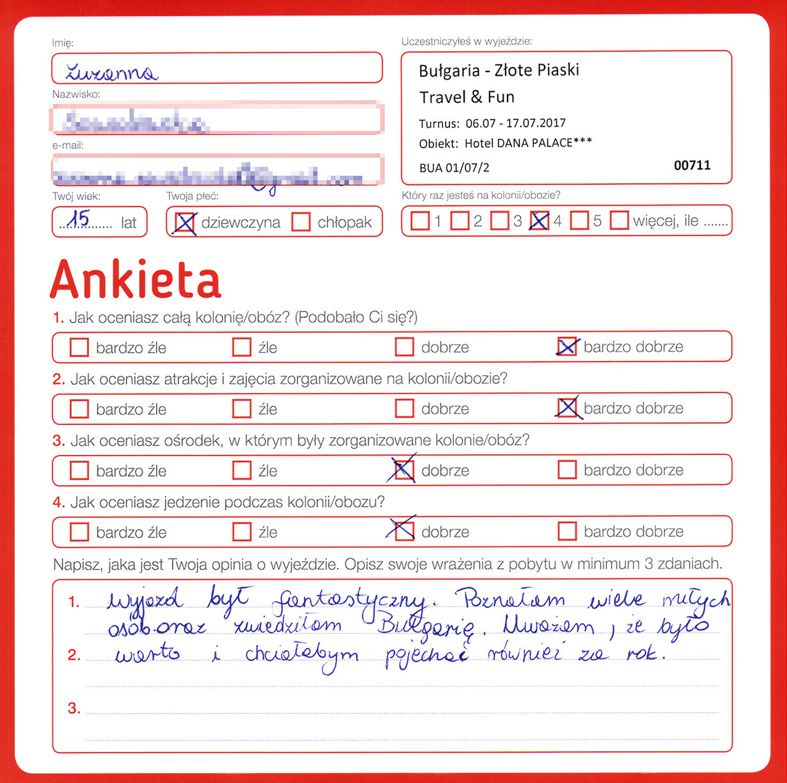 Imię:
Zuzanna
Nazwisko:
e-mail:
Twój wiek:
15 lat
Twoja płeć:
dziewczyna chłopak
Uczestniczyłeś w wyjeździe:
Bułgaria - Złote Piaski
Travel & Fun
Turnus: 06.07 - 17.07.2017
Obiekt: Hotel DANA PALACE***
BUA 01/07/2 00711
Który raz jesteś na kolonii/obozie?
1 2 3 4 5 więcej, ile .......
Ankieta
1. Jak oceniasz całą kolonię/obóz? (Podobało Ci się?)
bardzo źle źle dobrze bardzo dobrze
2. Jak oceniasz atrakcje i zajęcia zorganizowane na kolonii/obozie?
bardzo źle źle dobrze bardzo dobrze
3. Jak oceniasz ośrodek, w którym były zorganizowane kolonie/obóz?
bardzo źle źle dobrze bardzo dobrze
4. Jak oceniasz jedzenie podczas kolonii/obozu?
bardzo źle źle dobrze bardzo dobrze
Napisz, jaka jest Twoja opinia o wyjeździe. Opisz swoje wrażenia z pobytu w minimum 3 zdaniach.
1. Wyjazd był fantastyczny. Poznałam wiele miłych
osób oraz zwiedziłam Bułgarię. Uważam, że było
2. warto i chciałabym pojechać również za rok.
3.